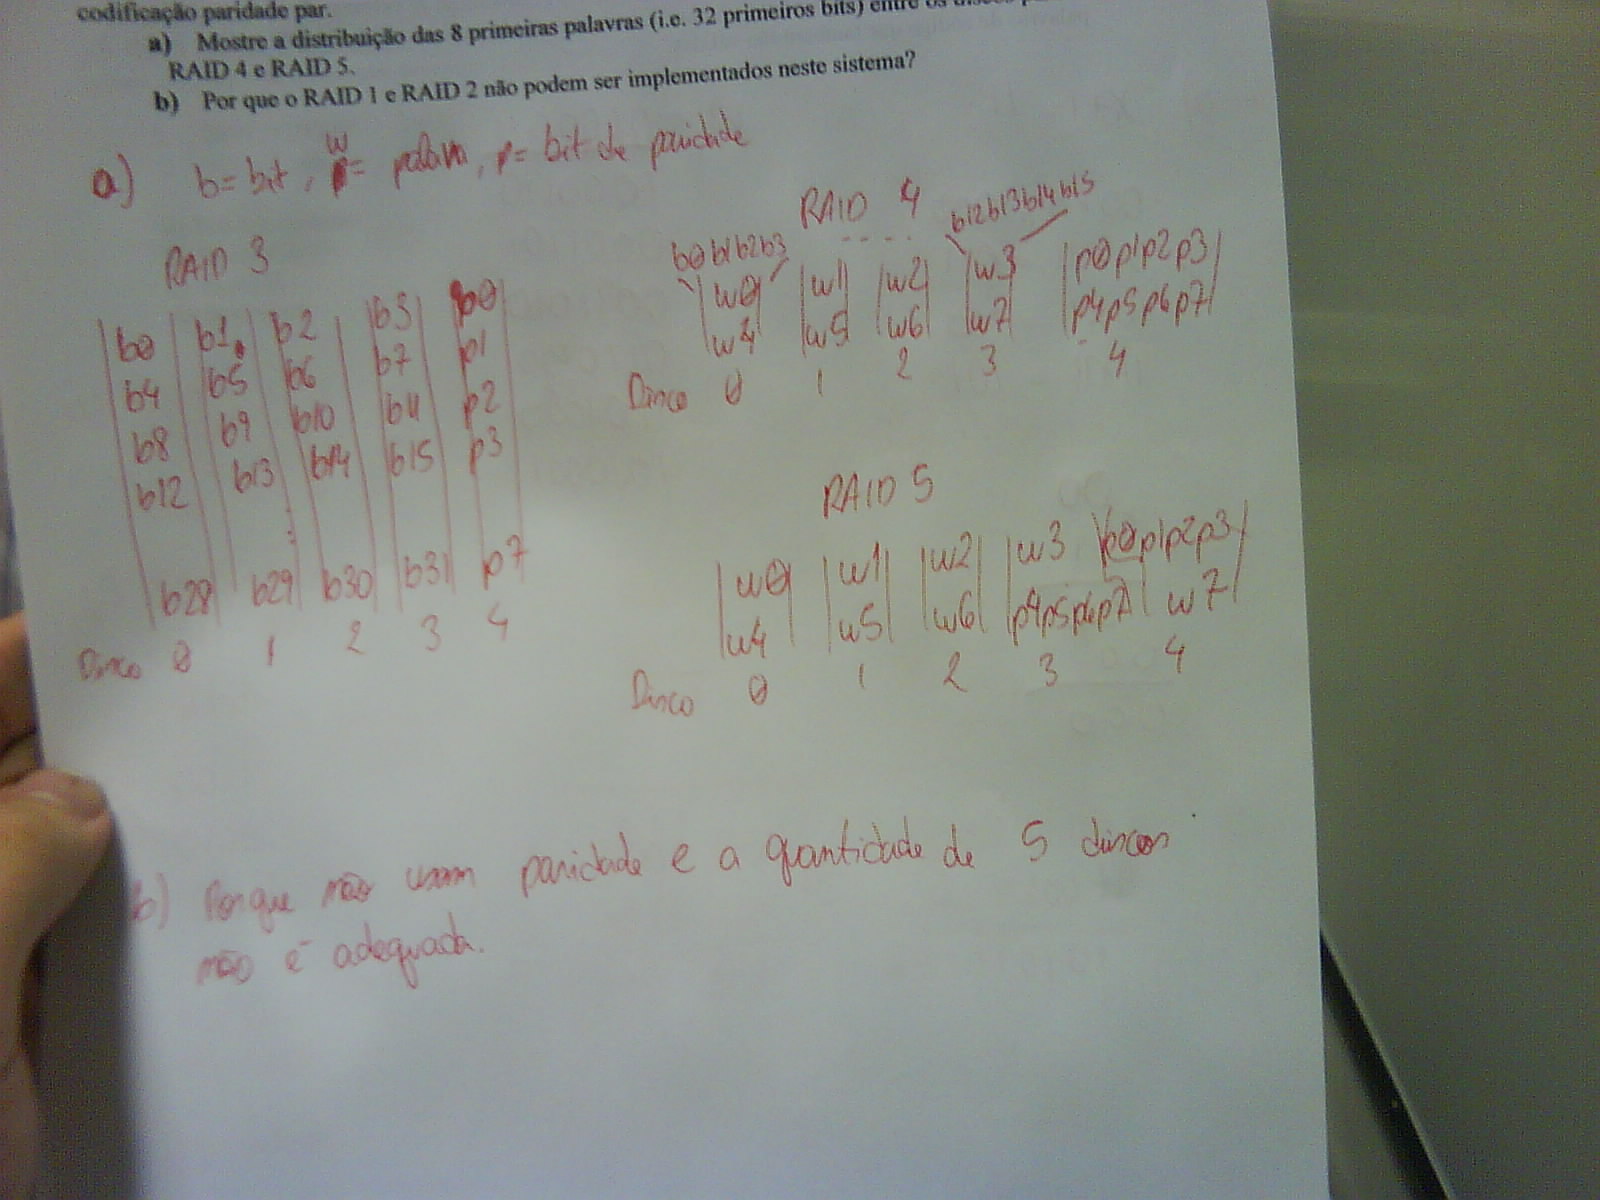 codificação paridade par.
a) Mostre a distribuição das 8 primeiras palavras (i.e. 32 primeiros bits) entre os discos
RAID 4 e RAID 5.
b) Por que o RAID 1 e RAID 2 não podem ser implementados neste sistema?
a) b = bit, w = palavra, p = bit de paridade
RAID 3
b0 b1 b2 b3 p0
b4 b5 b6 b7 p1
b8 b9 b10 b11 p2
b12 b13 b14 b15 p3
b28 b29 b30 b31 p7
Disco 0 1 2 3 4
RAID 4
b0b1b2b3 .... b12b13b14b15
w0 w1 w2 w3 p0p1p2p3
w4 w5 w6 w7 p4p5p6p7
Disco 0 1 2 3 4
RAID 5
w0 w1 w2 w3 p0p1p2p3
w4 w5 w6 p4p5p6p7 w7
Disco 0 1 2 3 4
b) Porque não usam paridade e a quantidade de 5 discos
não é adequada.